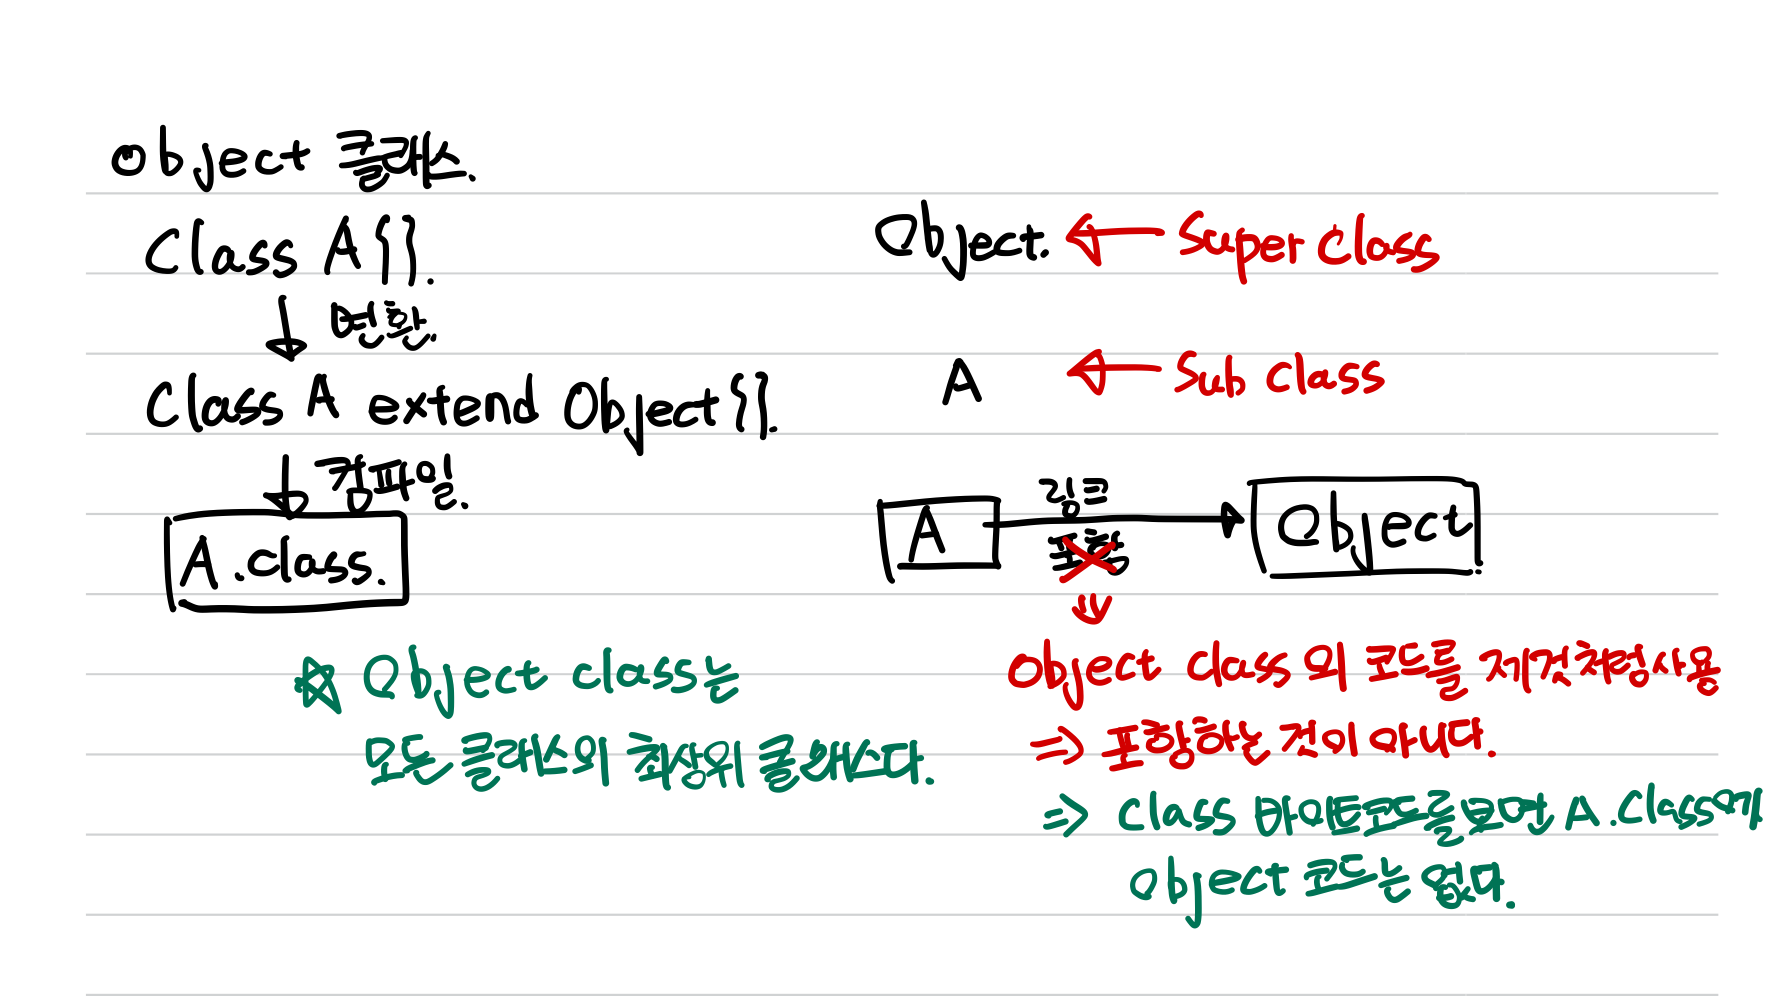 Object 클래스.
Class A {}.
변환.
Class A extend Object {}.
컴파일.
A.class.
☆ Object class는
모든 클래스의 최상위 클래스다.
Object. ← Super Class
A ← Sub class
A 링크 Object
포함
Object Class의 코드를 제것처럼사용
⇒ 포함하는 것이 아니다.
⇒ Class 바이트코드를보면 A.Class에
Object 코드는 없다.